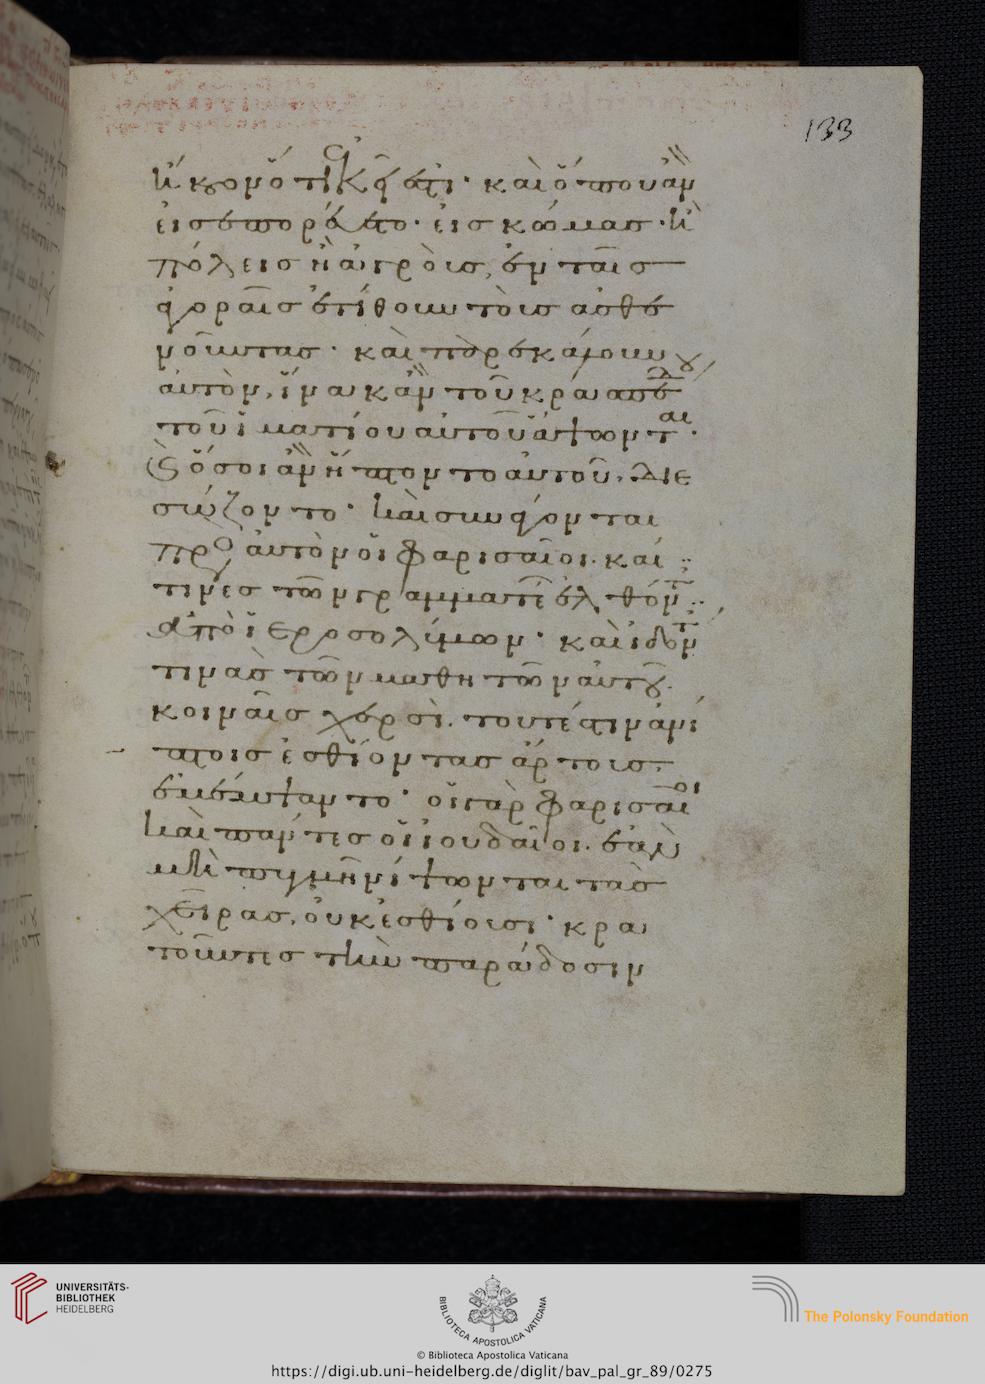 133
ἤκουον ὅτι ἐκεῖ ἐστι· καὶ ὅπου ἂν
εἰσεπορεύετο· εἰς κώμας· ἢ
πόλεις ἢ ἀγρούς, ἐν ταῖς
ἀγοραῖς ἐτίθουν τοὺς ἀσθε
νοῦντας· καὶ παρεκάλουν
αὐτὸν, ἵνα κἂν τοῦ κρασπέδου
τοῦ ἱματίου αὐτοῦ ἅψωνται·
καὶ ὅσοι ἂν ἥπτοντο αὐτοῦ, διε
σώζοντο· καὶ συνάγονται
πρὸς αὐτὸν οἱ φαρισαῖοι. καί
τινες τῶν γραμματέων ἐλθόντες
ἀπὸ ἱεροσολύμων· καὶ ἰδόντες
τινὰς τῶν μαθητῶν αὐτοῦ
κοιναῖς χερσὶ. τουτέστιν ἀνί
πτοις ἐσθίοντας ἄρτους.
ἐμέμψαντο· οἱ γὰρ φαρισαῖοι
καὶ πάντες οἱ ἰουδαῖοι. ἐὰν
μὴ πυγμῇ νίψωνται τὰς
χεῖρας, οὐκ ἐσθίουσι· κρα
τοῦντες τὴν παράδοσιν
UNIVERSITÄTS-
BIBLIOTHEK
HEIDELBERG
BIBLIOTECA APOSTOLICA VATICANA
The Polonsky Foundation
© Biblioteca Apostolica Vaticana
https://digi.ub.uni-heidelberg.de/diglit/bav_pal_gr_89/0275